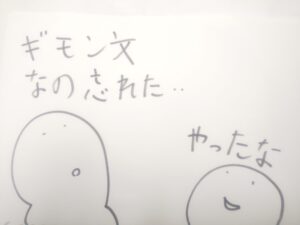 ギモン文
なの忘れた‥
やったな